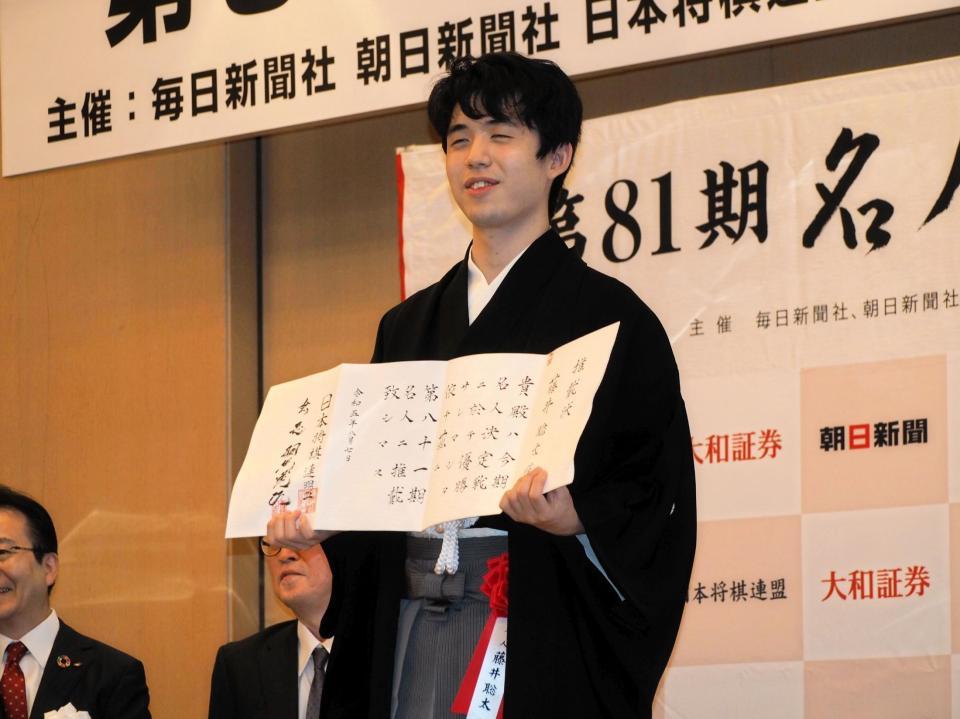 第
主催：毎日新聞社 朝日新聞社 日本将棋連盟
第81期 名人
主催 毎日新聞社、朝日新聞社
推戴状
藤井聡太
貴殿ハ今期
名人決定戦
ニ於テ優勝
第八十一期
名人ニ推戴
致シマス
日本将棋連盟
大和証券
朝日新聞
日本将棋連盟
大和証券
藤井聡太